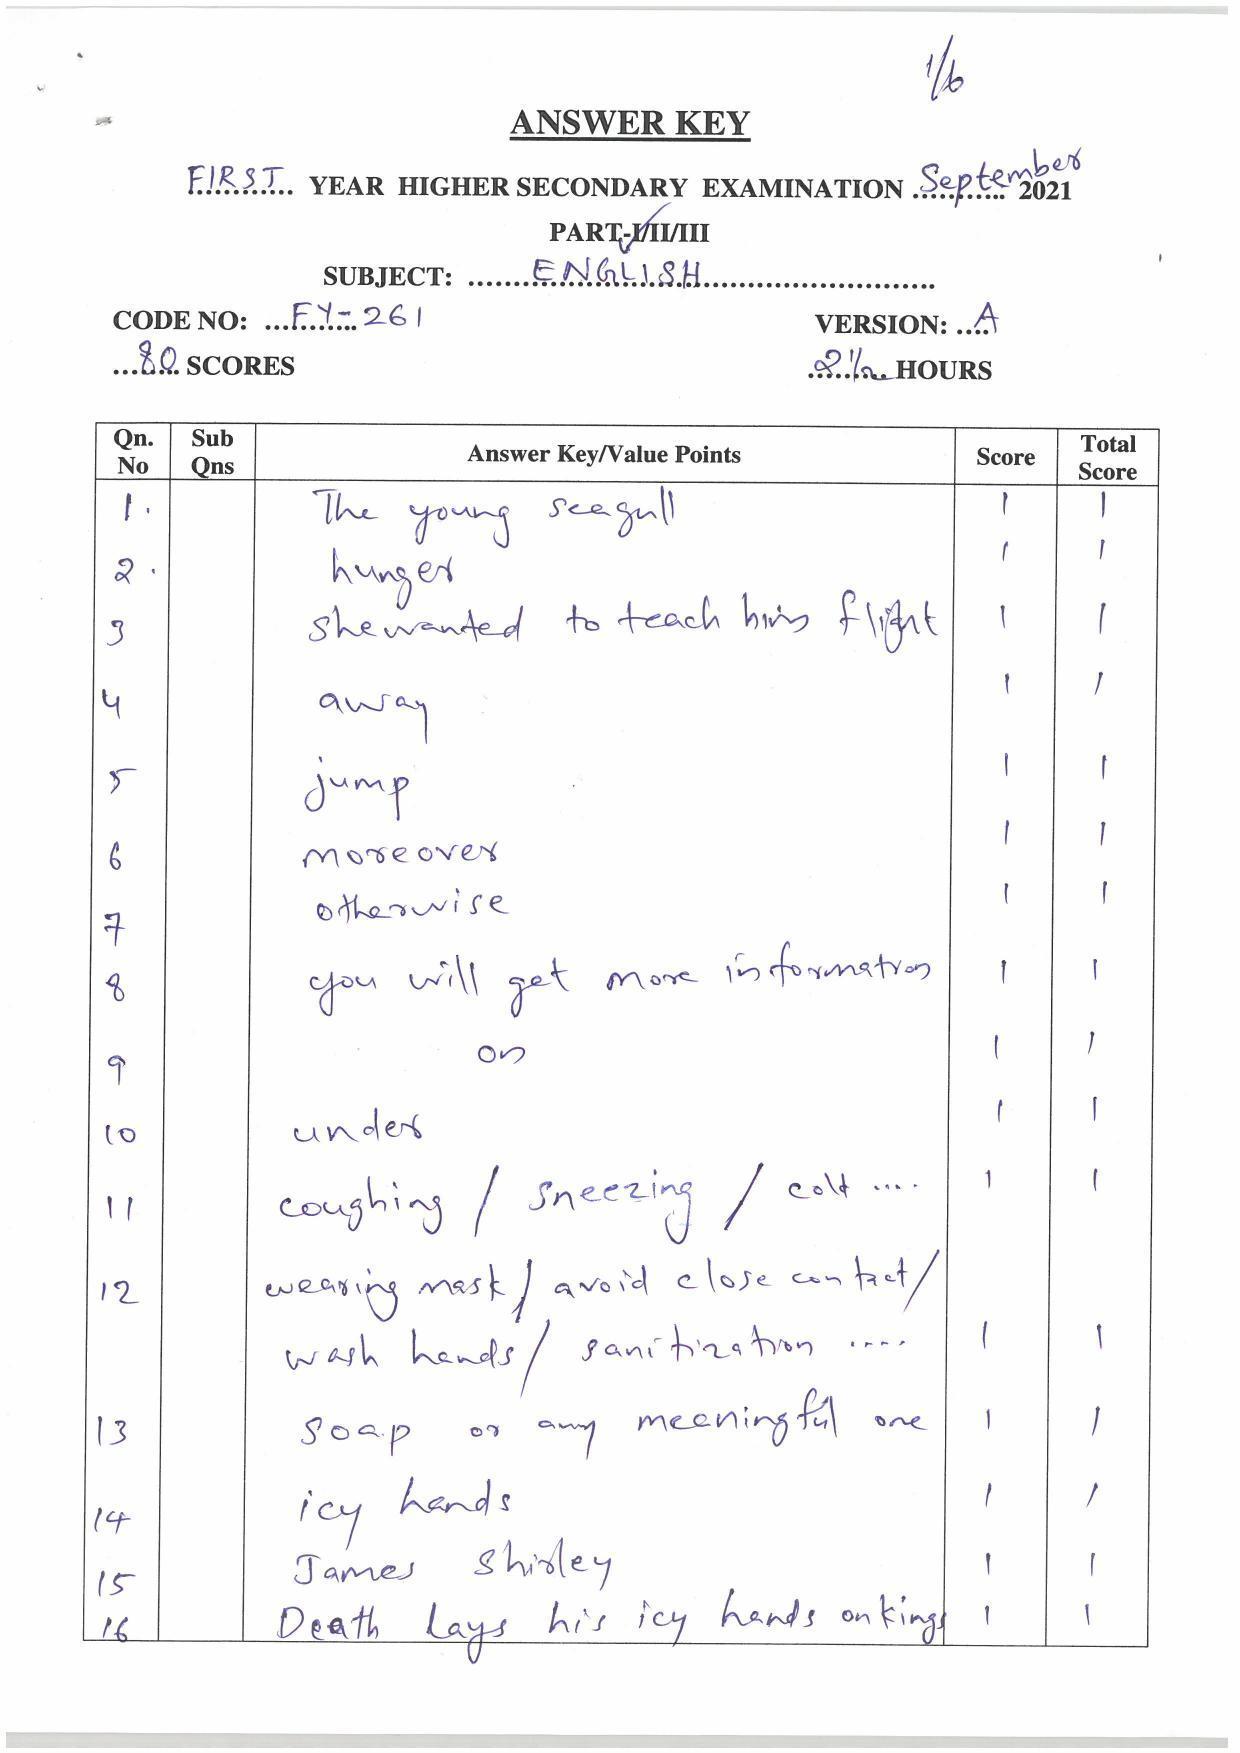 1/6
ANSWER KEY
FIRST YEAR HIGHER SECONDARY EXAMINATION September 2021
PART-I/II/III
SUBJECT: ......ENGLISH......
CODE NO: ...FY-261
VERSION: ....A
...80 SCORES
2½ HOURS
Qn. No Sub Qns Answer Key/Value Points Score Total Score
1. The young seagull 1 1
2. hunger 1 1
3 she wanted to teach him flight 1 1
4 away 1 1
5 jump 1 1
6 moreover 1 1
7 otherwise 1 1
8 you will get more information 1 1
9 on 1 1
10 under 1 1
11 coughing / sneezing / cold .... 1 1
12 wearing mask / avoid close contact /
wash hands / sanitization .... 1 1
13 soap or any meaningful one 1 1
14 icy hands 1 1
15 James Shirley 1 1
16 Death lays his icy hands on kings 1 1